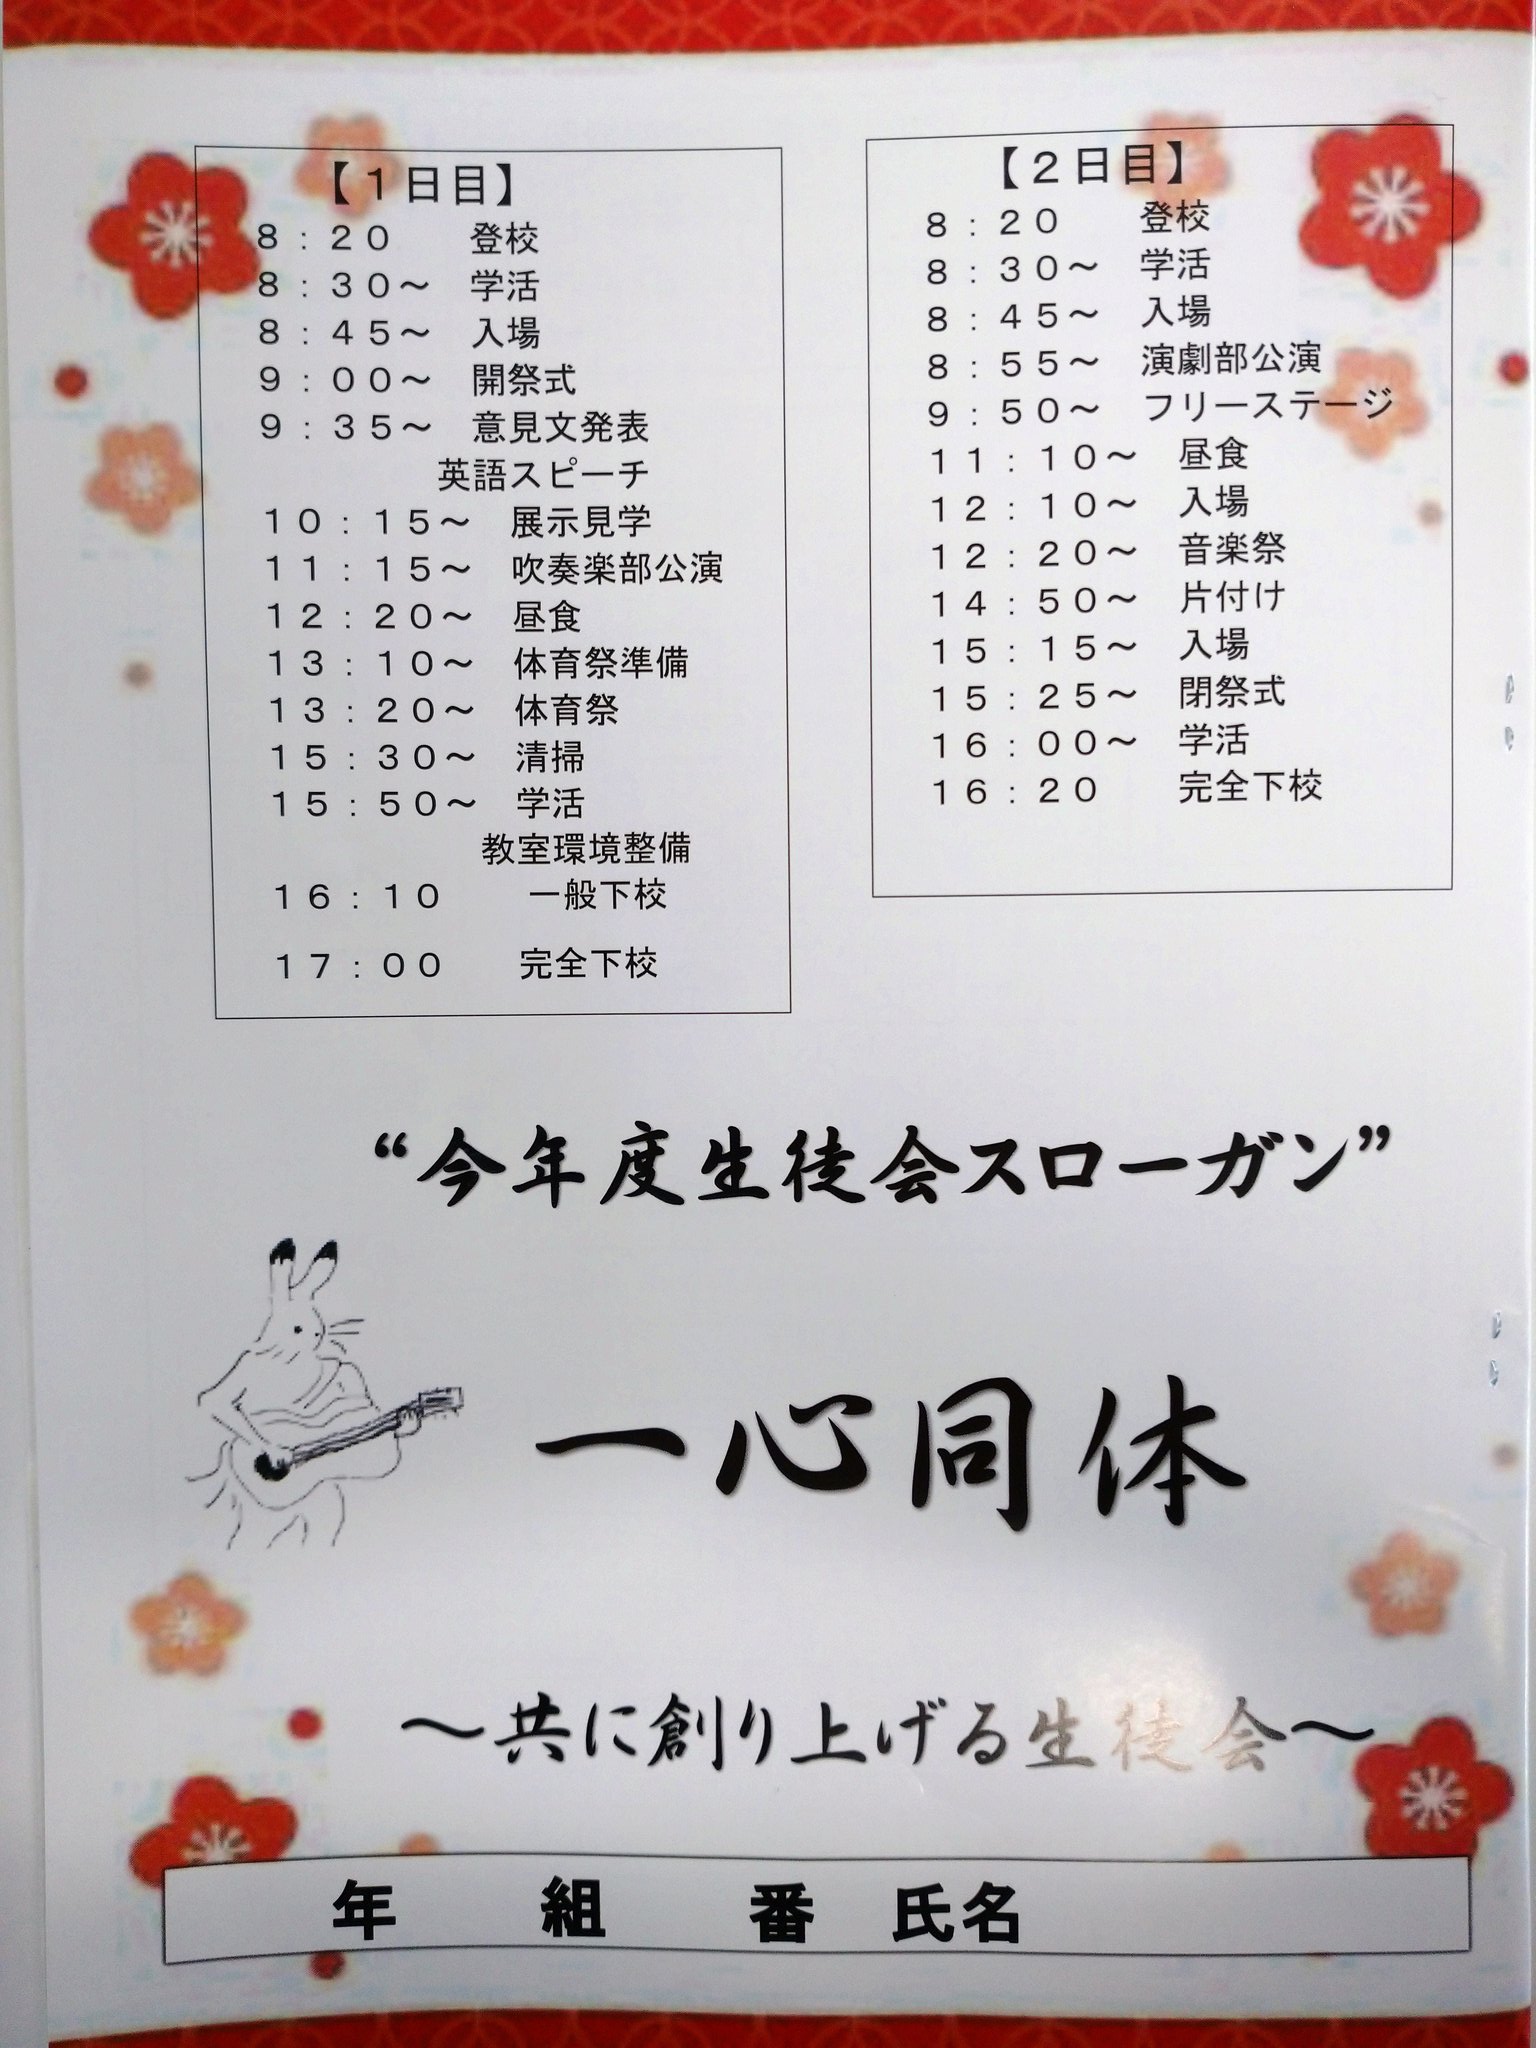 【１日目】
８：２０　登校
８：３０～　学活
８：４５～　入場
９：００～　開祭式
９：３５～　意見文発表
英語スピーチ
１０：１５～　展示見学
１１：１５～　吹奏楽部公演
１２：２０～　昼食
１３：１０～　体育祭準備
１３：２０～　体育祭
１５：３０～　清掃
１５：５０～　学活
教室環境整備
１６：１０　一般下校
１７：００　完全下校
【２日目】
８：２０　登校
８：３０～　学活
８：４５～　入場
８：５５～　演劇部公演
９：５０～　フリーステージ
１１：１０～　昼食
１２：１０～　入場
１２：２０～　音楽祭
１４：５０～　片付け
１５：１５～　入場
１５：２５～　閉祭式
１６：００～　学活
１６：２０　完全下校
“今年度生徒会スローガン”
一心同体
～共に創り上げる生徒会～
年　組　番　氏名